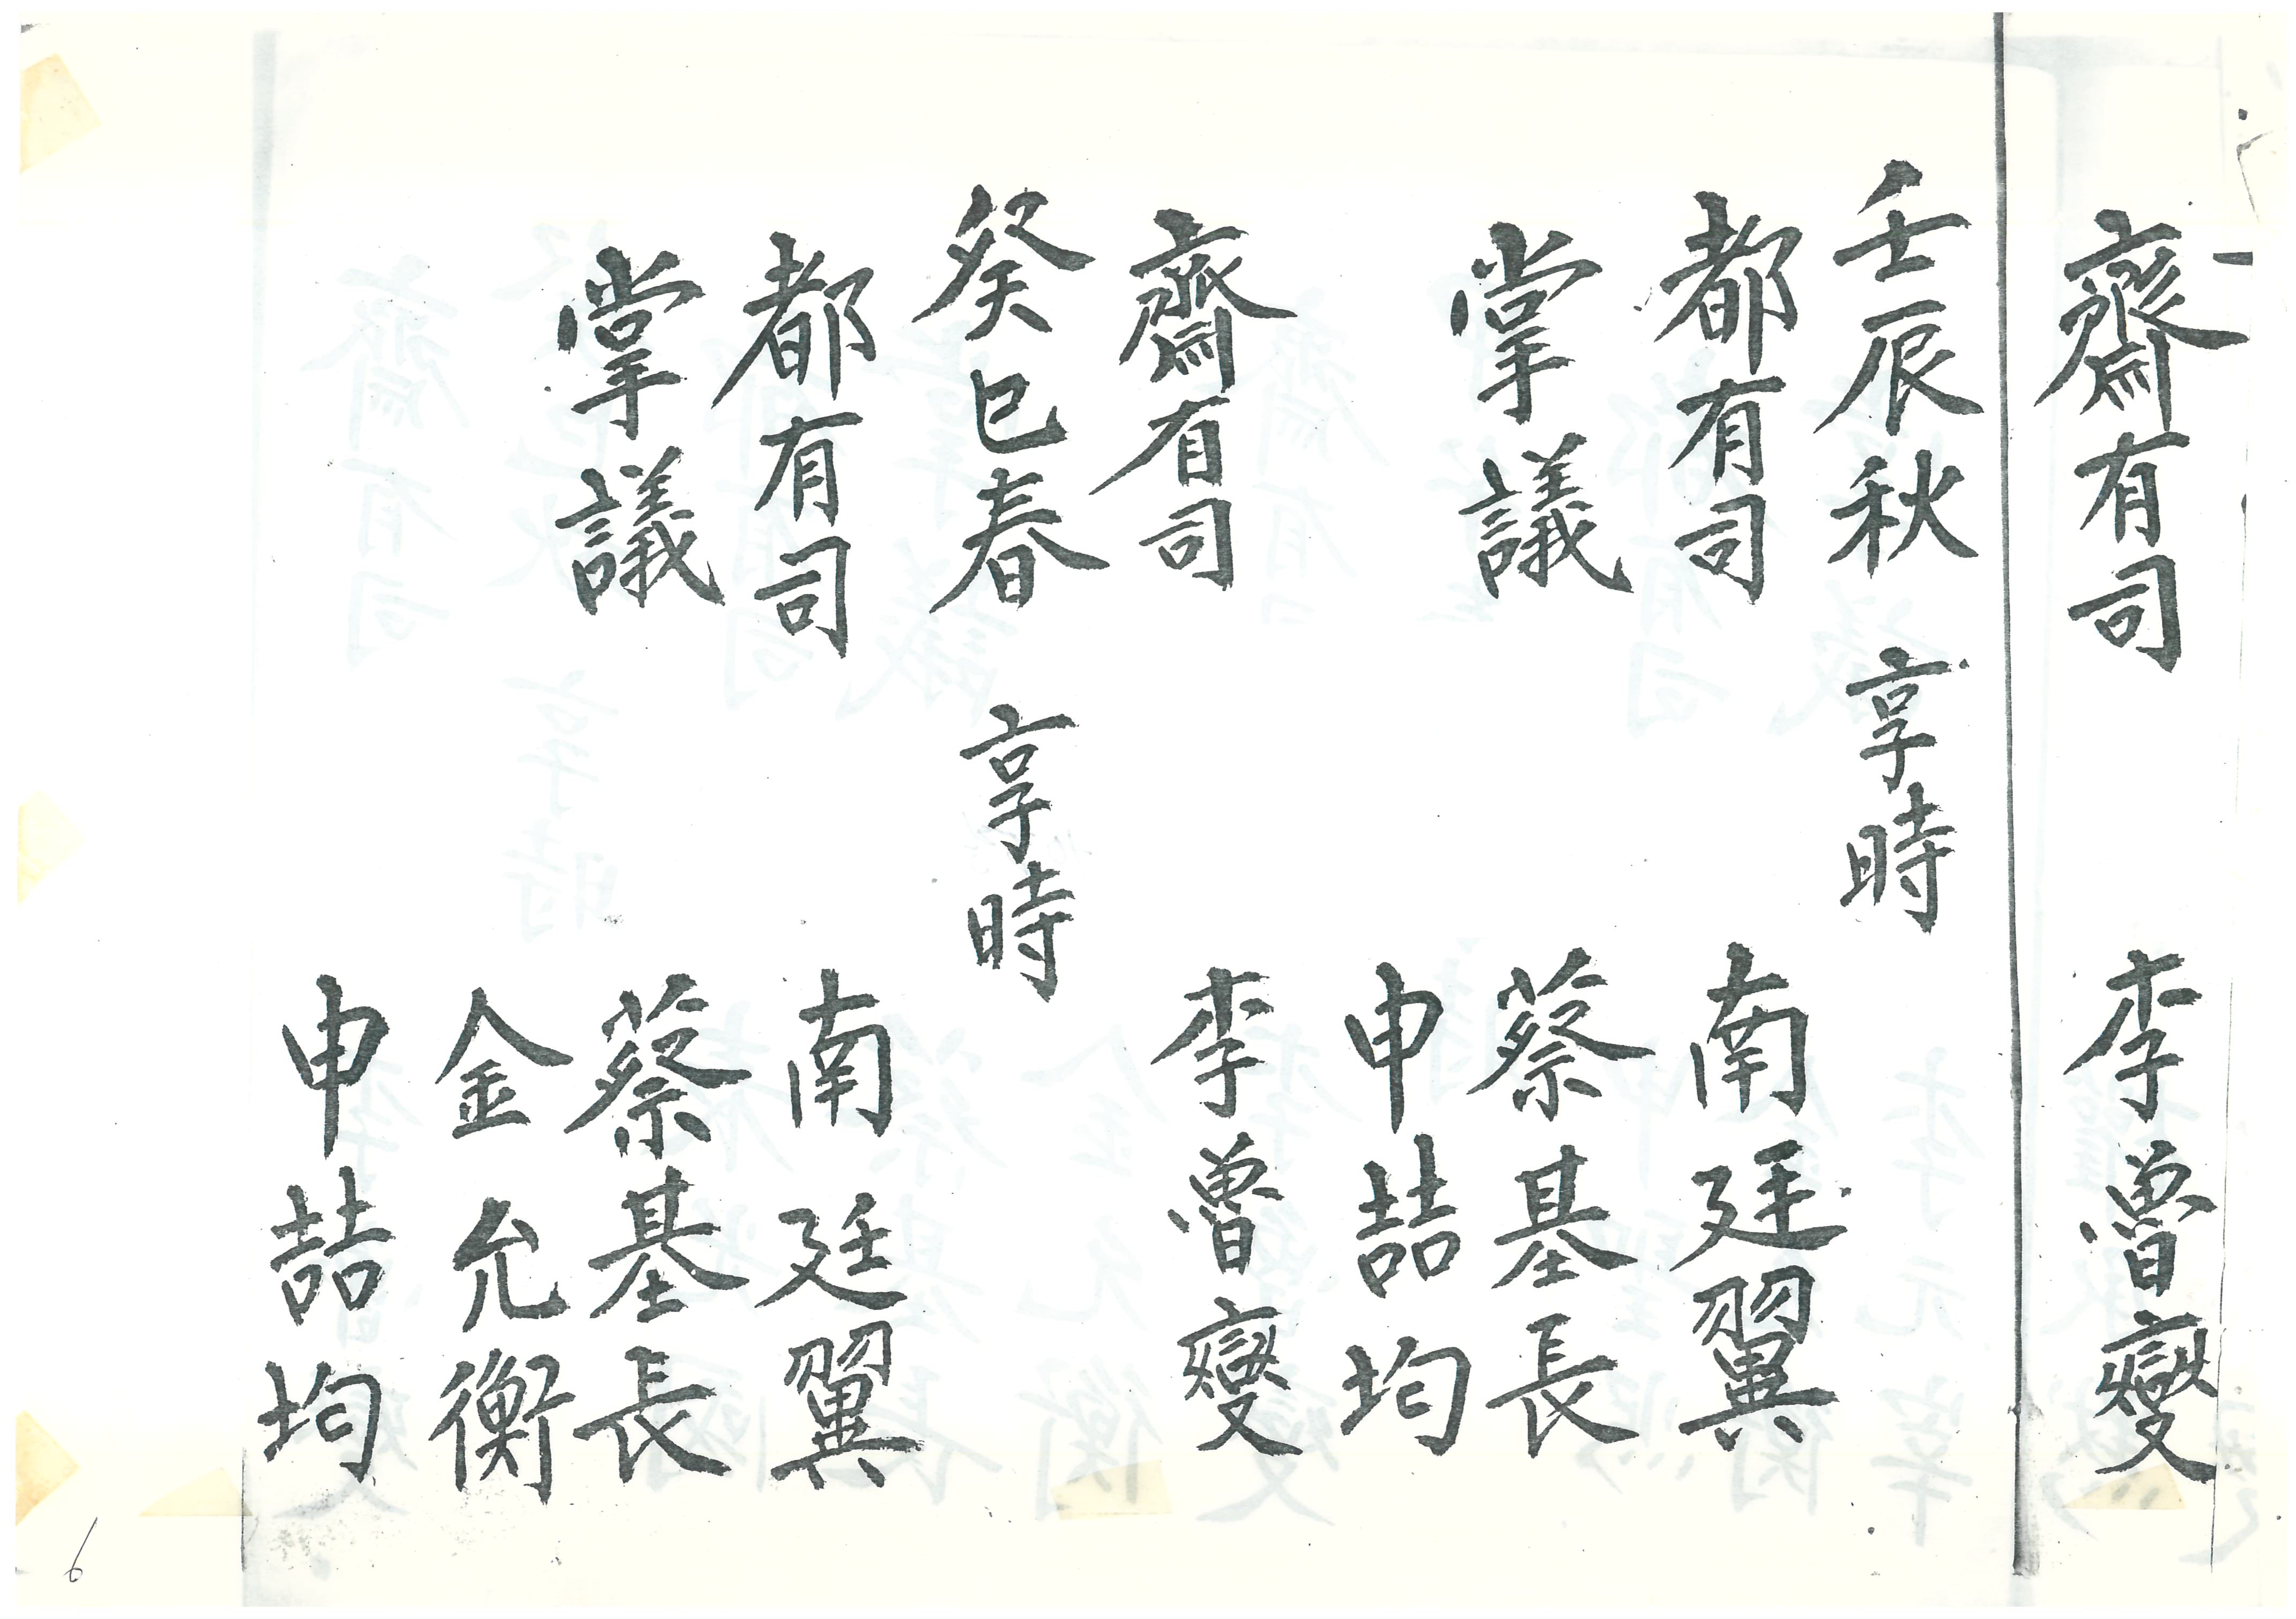 齋有司 李魯燮
壬辰秋 享時
都有司 南廷翼
掌議 蔡基長
申喆均
齋有司 李魯燮
癸巳春 享時
都有司 南廷翼
掌議 蔡基長
金允衡
申喆均
6